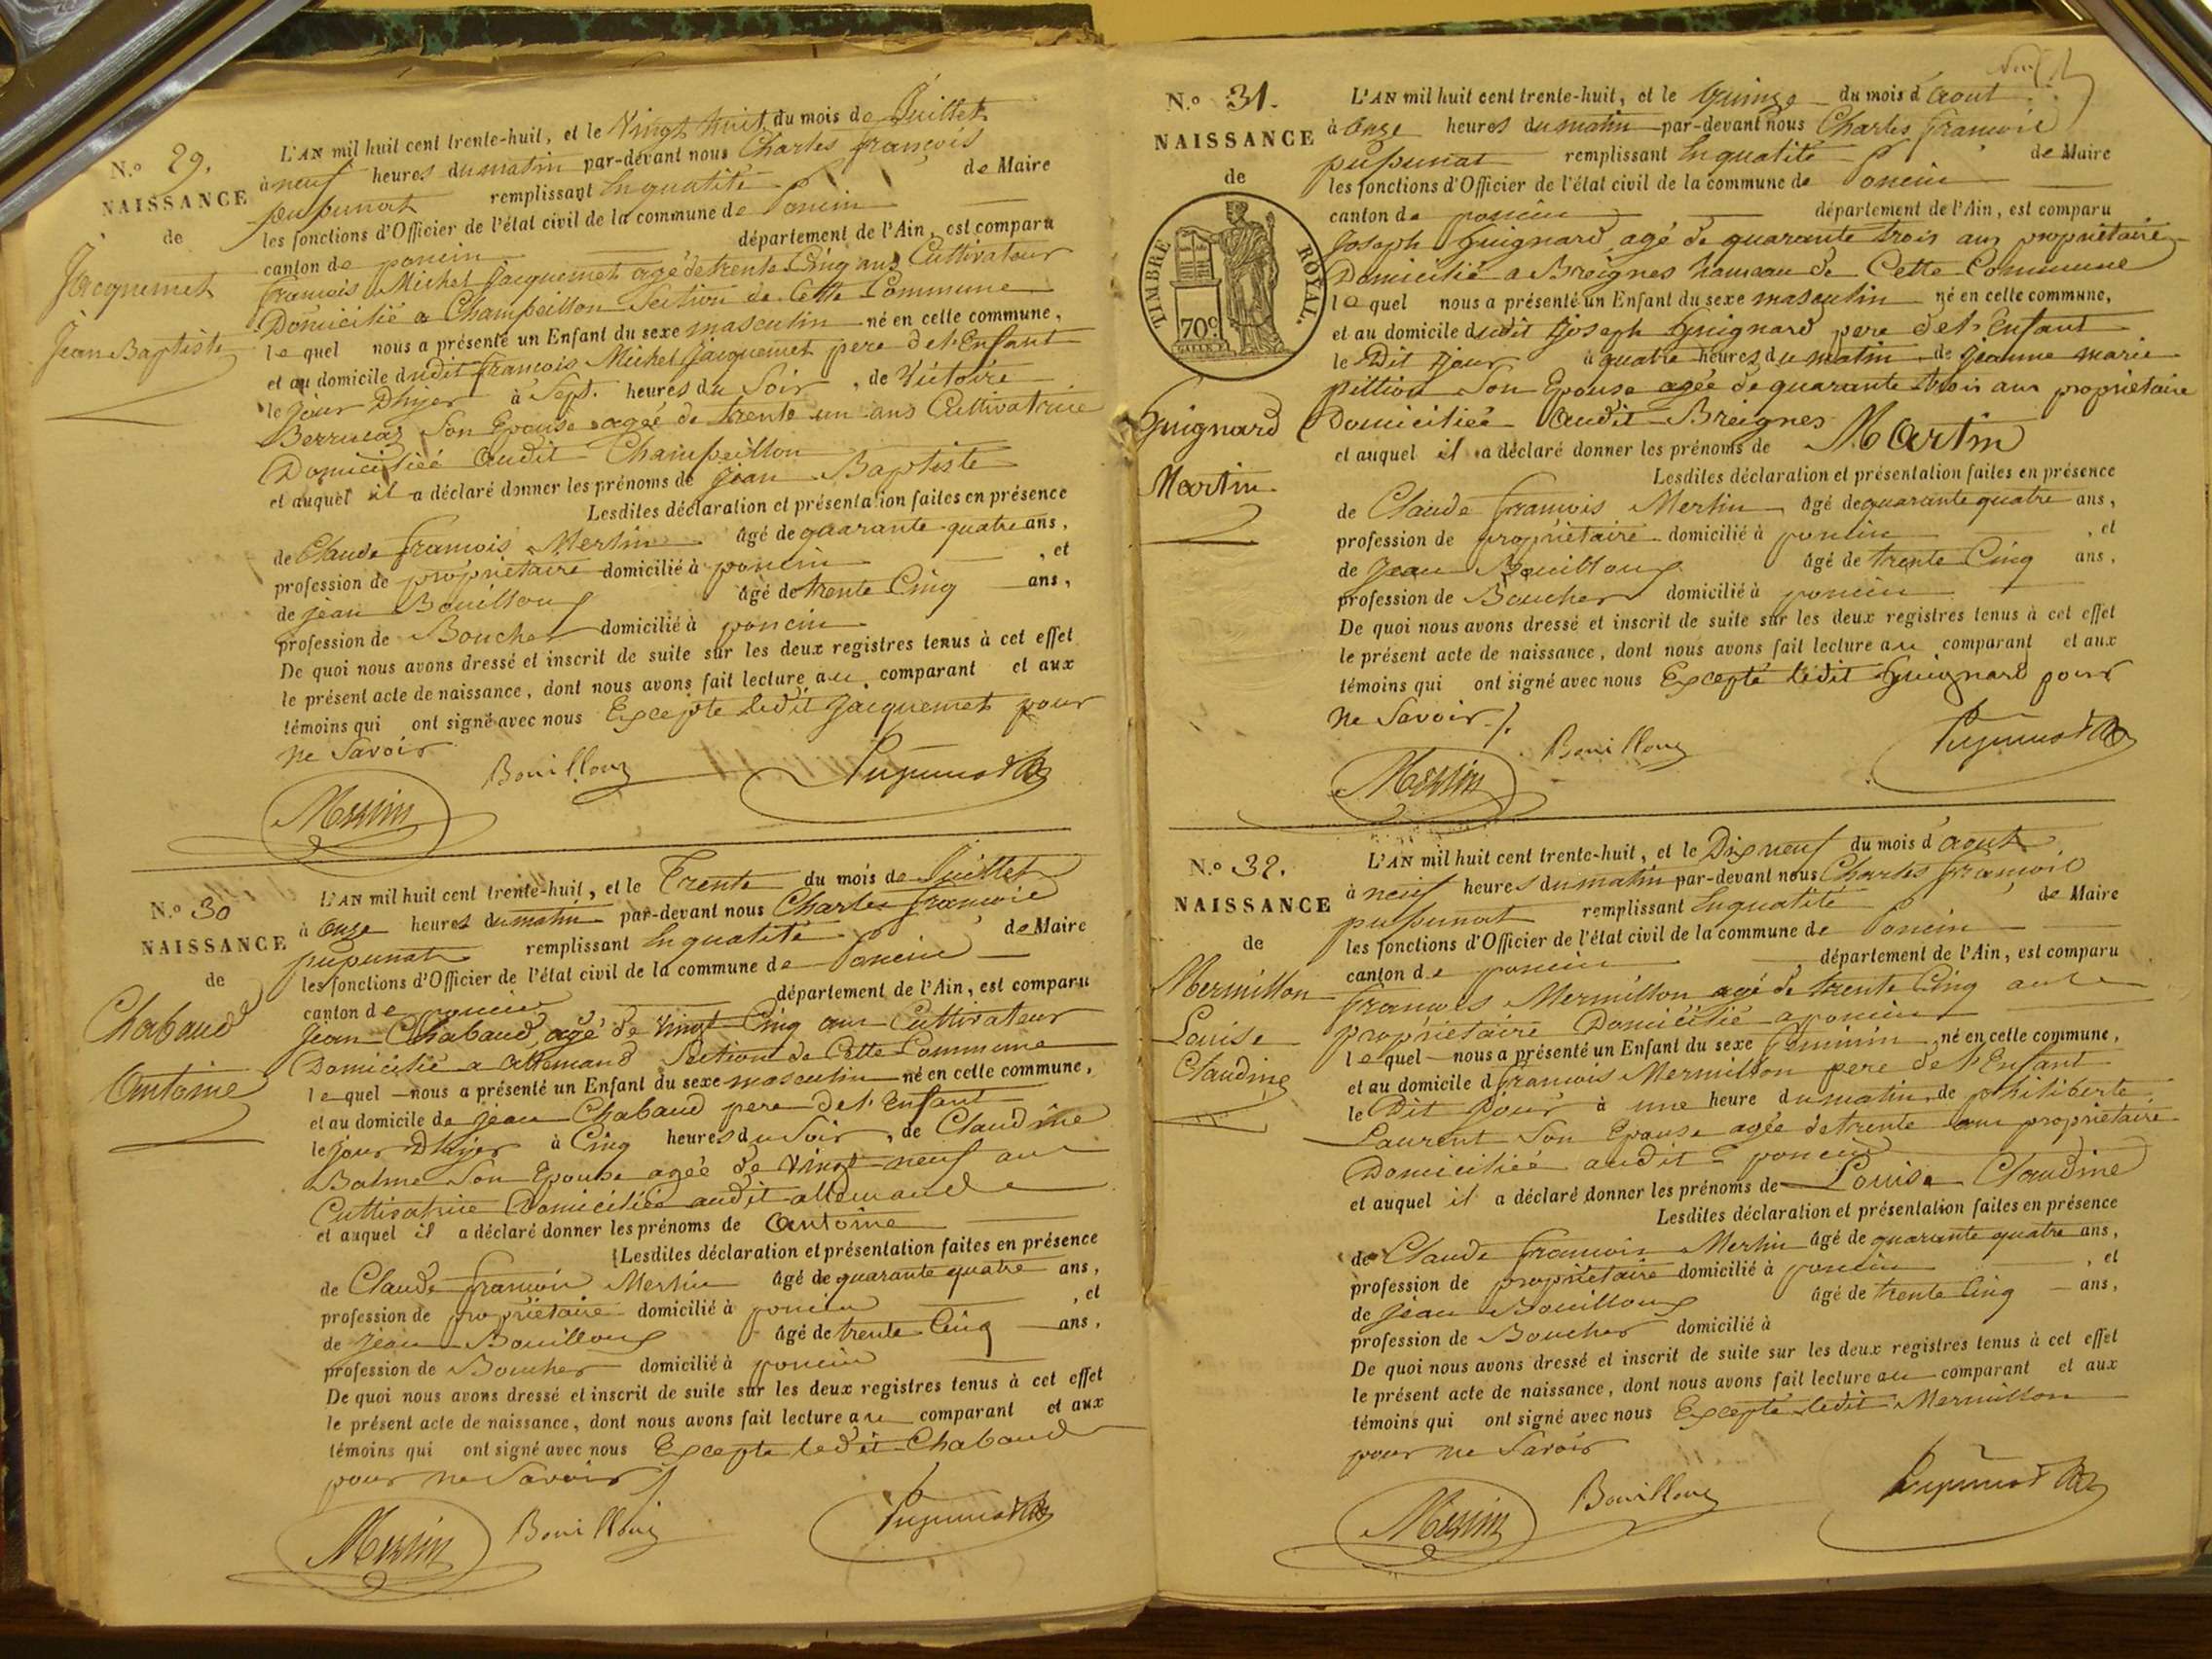 N.o 29.
NAISSANCE
de
Jacquemet
Jean Baptiste
L'AN mil huit cent trente-huit, et le Vingt huit du mois de Juillet
à neuf heures du matin par-devant nous Charles françois
pupunat remplissant En qualité de Maire
les fonctions d'Officier de l'état civil de la commune de Poncin
canton de poncin département de l'Ain, est comparu
françois Michel Jacquemet agé de trente Cinq ans Cultivateur
Domicilié a Champeillon Section de Cette Commune
le quel nous a présenté un Enfant du sexe masculin né en cette commune,
et au domicile dudit françois Michel Jacquemet pere de l'Enfant
le jour D'hyer à Sept heures du Soir, de Victoire
Berrucaz Son Epouse agée de trente un ans Cultivatrice
Domiciliée audit Champeillon
et auquel il a déclaré donner les prénoms de Jean Baptiste
Lesdites déclaration et présentation faites en présence
de Claude françois Merlin âgé de quarante quatre ans,
profession de propriétaire domicilié à poncin, et
de jean Bouilloux âgé de trente Cinq ans,
profession de Boucher domicilié à poncin
De quoi nous avons dressé et inscrit de suite sur les deux registres tenus à cet effet
le présent acte de naissance, dont nous avons fait lecture au comparant et aux
témoins qui ont signé avec nous Excepte ledit Jacquemet pour
ne Savoir
Bouilloux Pupunat
Merlin
N.o 30
NAISSANCE
de
Chabaud
Antoine
L'AN mil huit cent trente-huit, et le Trente du mois de Juillet
à onze heures du matin par-devant nous Charles françois
pupunat remplissant En qualité de Maire
les fonctions d'Officier de l'état civil de la commune de Poncin
canton de poncin département de l'Ain, est comparu
Jean Chabaud agé de Vingt Cinq ans Cultivateur
Domicilié a allemand Section de Cette Commune
le quel nous a présenté un Enfant du sexe masculin né en cette commune,
et au domicile de jean Chabaud pere de l'Enfant
le jour D'hyer à Cinq heures du Soir, de Claudine
Balme Son Epouse agée de Vingt neuf ans
Cultivatrice Domiciliée audit allemand
et auquel il a déclaré donner les prénoms de Antoine
Lesdites déclaration et présentation faites en présence
de Claude françois Merlin âgé de quarante quatre ans,
profession de propriétaire domicilié à poncin, et
de jean Bouilloux âgé de trente Cinq ans,
profession de Boucher domicilié à poncin
De quoi nous avons dressé et inscrit de suite sur les deux registres tenus à cet effet
le présent acte de naissance, dont nous avons fait lecture au comparant et aux
témoins qui ont signé avec nous Excepte ledit Chabaud
pour ne Savoir
Merlin Bouilloux Pupunat
N.o 31.
NAISSANCE
de
TIMBRE ROYAL.
70c
Guignard
Martin
L'AN mil huit cent trente-huit, et le quinze du mois d'aout
à onze heures du matin par-devant nous Charles françois
pupunat remplissant En qualité de Maire
les fonctions d'Officier de l'état civil de la commune de Poncin
canton de poncin département de l'Ain, est comparu
Joseph Guignard agé de quarante trois ans propriétaire
Domicilié a Breignes hameau de Cette Commune
le quel nous a présenté un Enfant du sexe masculin né en cette commune,
et au domicile dudit Joseph Guignard pere de l'Enfant
le Dit Jour à quatre heures du matin de jeanne marie
pittion Son Epouse agée de quarante trois ans propriétaire
Domiciliée audit Breignes
et auquel il a déclaré donner les prénoms de Martin
Lesdites déclaration et présentation faites en présence
de Claude françois Merlin âgé de quarante quatre ans,
profession de propriétaire domicilié à poncin, et
de Jean Bouilloux âgé de trente Cinq ans,
profession de Boucher domicilié à poncin
De quoi nous avons dressé et inscrit de suite sur les deux registres tenus à cet effet
le présent acte de naissance, dont nous avons fait lecture au comparant et aux
témoins qui ont signé avec nous Excepté ledit Guignard pour
ne Savoir
Bouilloux Pupunat
Merlin
N.o 32.
NAISSANCE
de
Mermillon
Louise
Claudine
L'AN mil huit cent trente-huit, et le Dix neuf du mois d'aout
à neuf heures du matin par-devant nous Charles françois
pupunat remplissant En qualité de Maire
les fonctions d'Officier de l'état civil de la commune de Poncin
canton de poncin département de l'Ain, est comparu
françois Mermillon agé de trente Cinq ans
propriétaire Domicilié a poncin
le quel nous a présenté un Enfant du sexe féminin né en cette commune,
et au domicile d françois Mermillon pere de l'Enfant
le Dit Jour à une heure du matin de philiberte
Laurent Son Epouse agée de trente ans propriétaire
Domiciliée audit poncin
et auquel il a déclaré donner les prénoms de Louise Claudine
Lesdites déclaration et présentation faites en présence
de Claude françois Merlin âgé de quarante quatre ans,
profession de propriétaire domicilié à poncin, et
de jean Bouilloux âgé de trente Cinq ans,
profession de Boucher domicilié à
De quoi nous avons dressé et inscrit de suite sur les deux registres tenus à cet effet
le présent acte de naissance, dont nous avons fait lecture au comparant et aux
témoins qui ont signé avec nous Excepté ledit Mermillon
pour ne Savoir
Merlin Bouilloux Pupunat